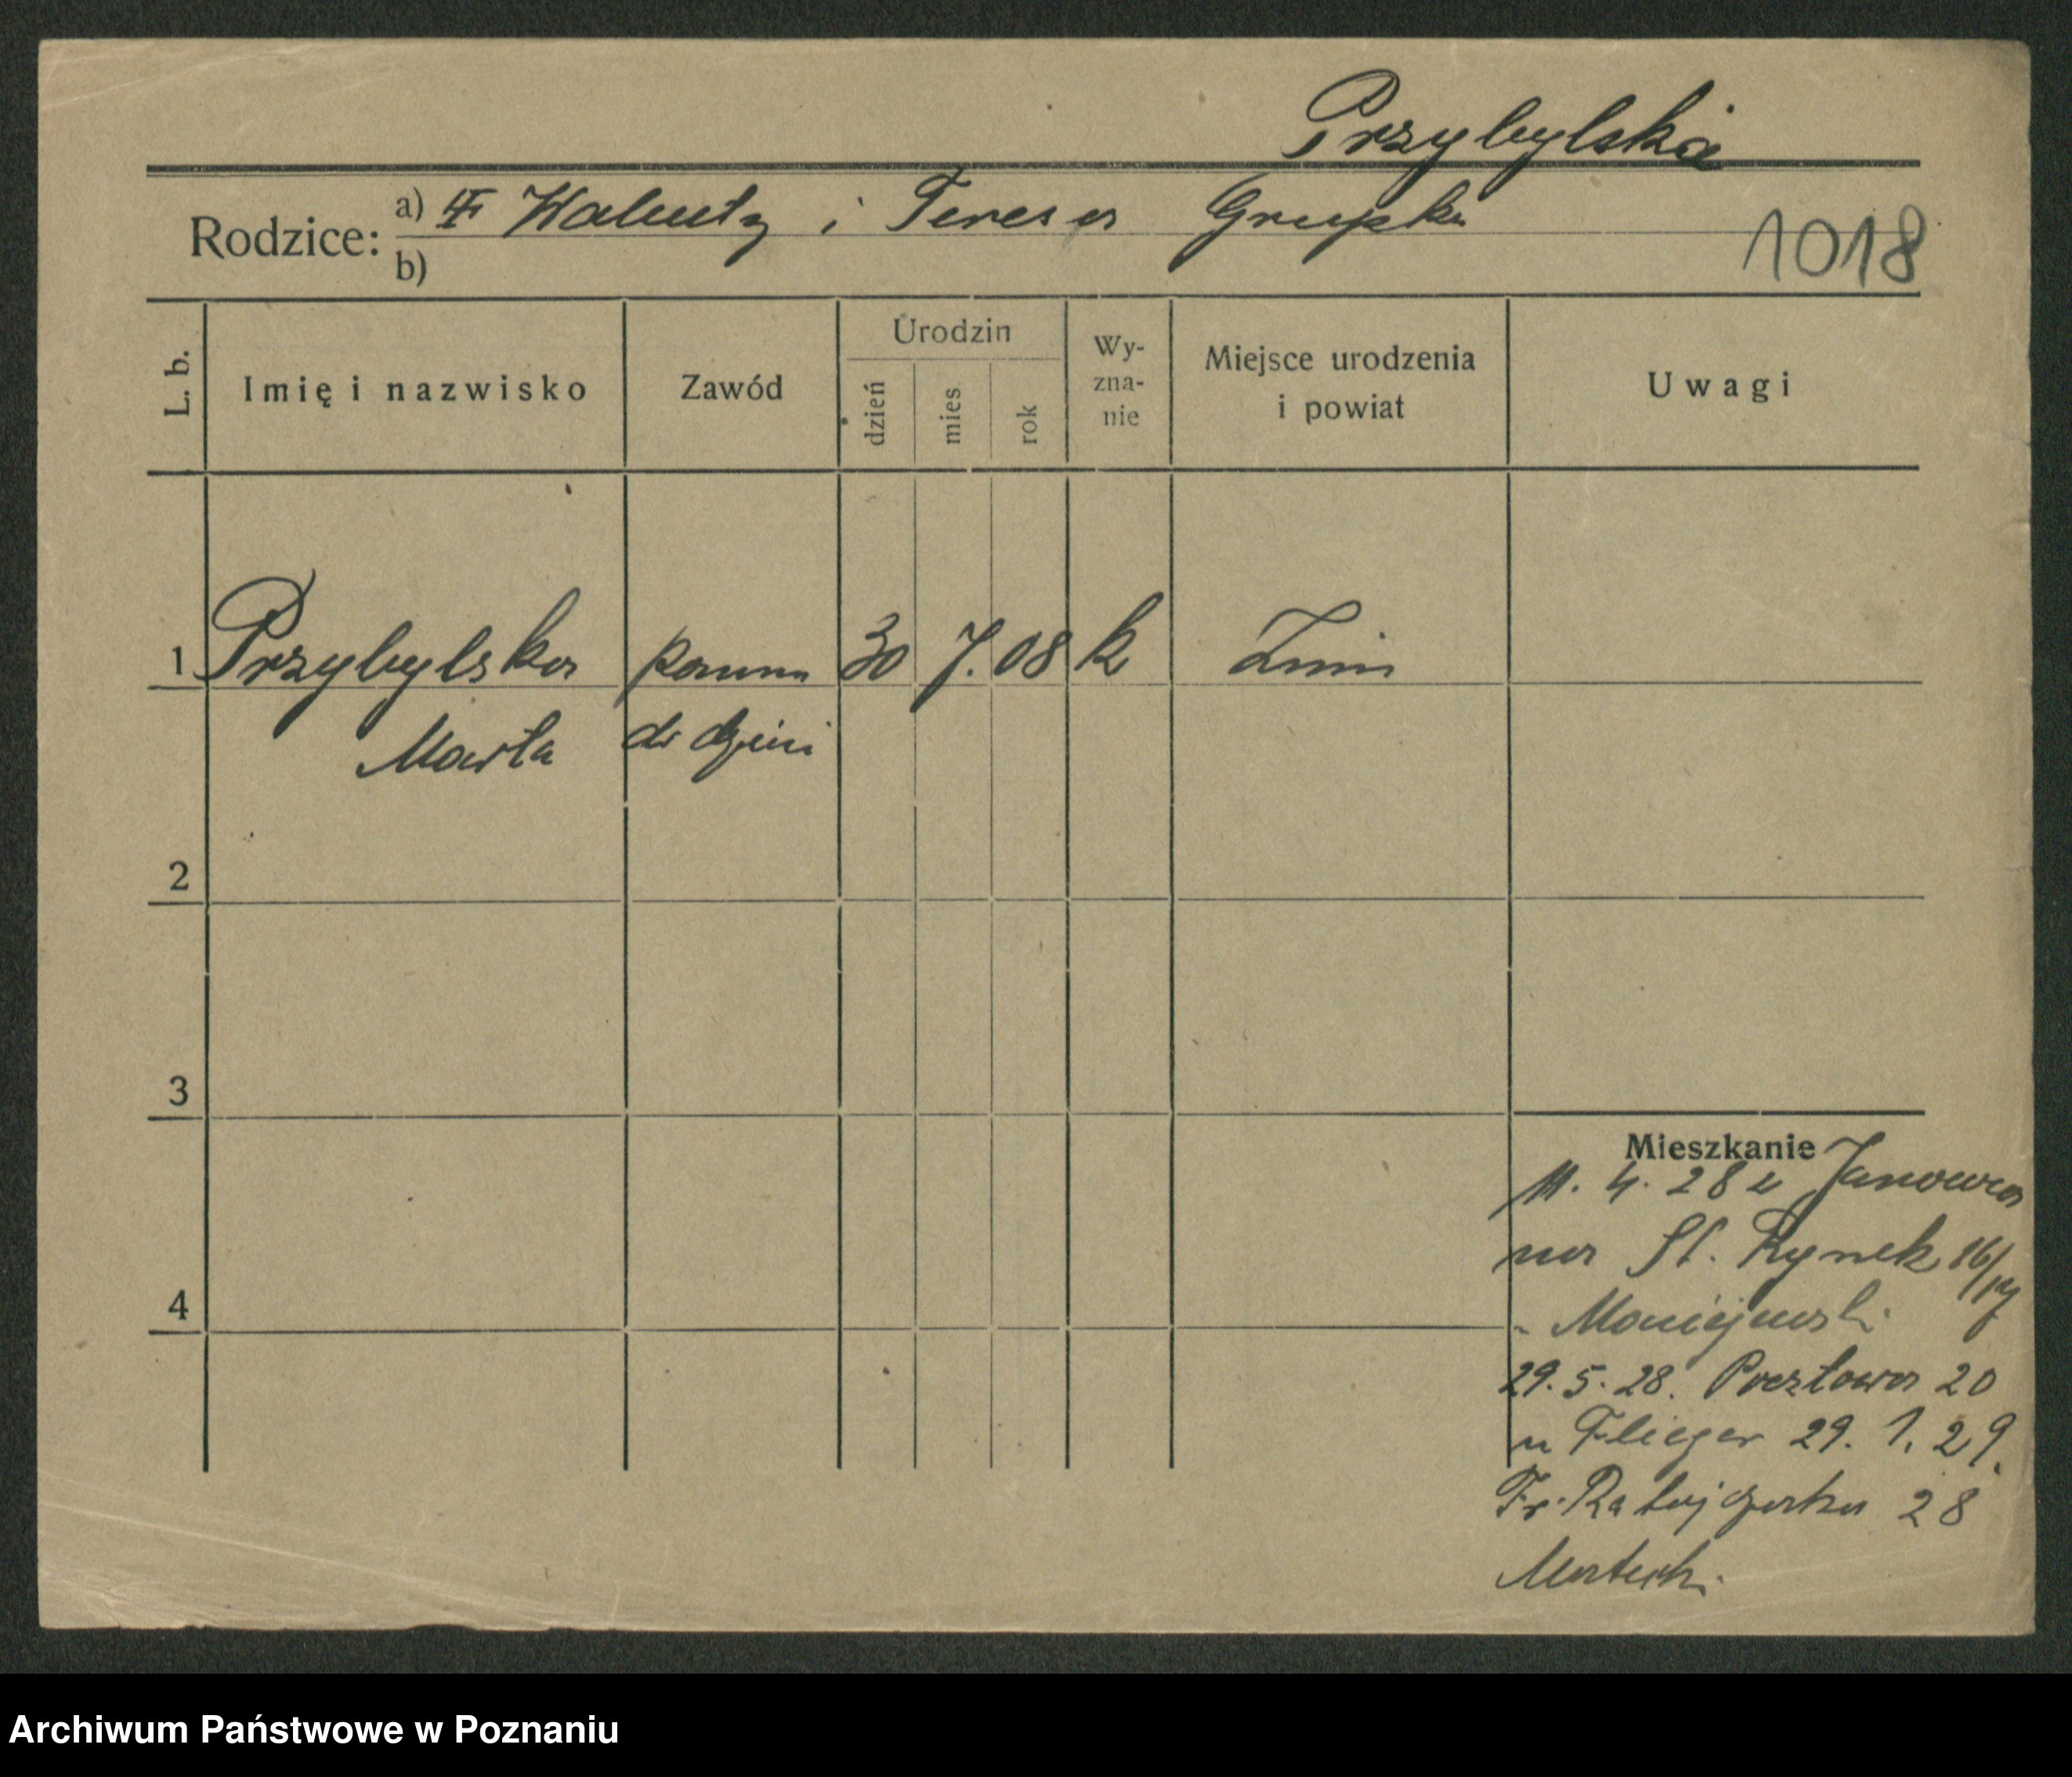 Przybylska
Rodzice: a) Walenty i Teresa
b)
1018
L. b.
Imię i nazwisko
Zawód
Urodzin
dzień
mies
rok
Wy-
zna-
nie
Miejsce urodzenia
i powiat
Uwagi
1 Przybylska panna 30 7. 08 k Żnin
Marta do dzieci
2
3
4
Mieszkanie
11. 4. 28 z Janowca
na St. Rynek 16/17
29. 5. 28. Pocztowa 20
u Flieger 29. 1. 29.
Fr. Ratajczaka 28
Archiwum Państwowe w Poznaniu